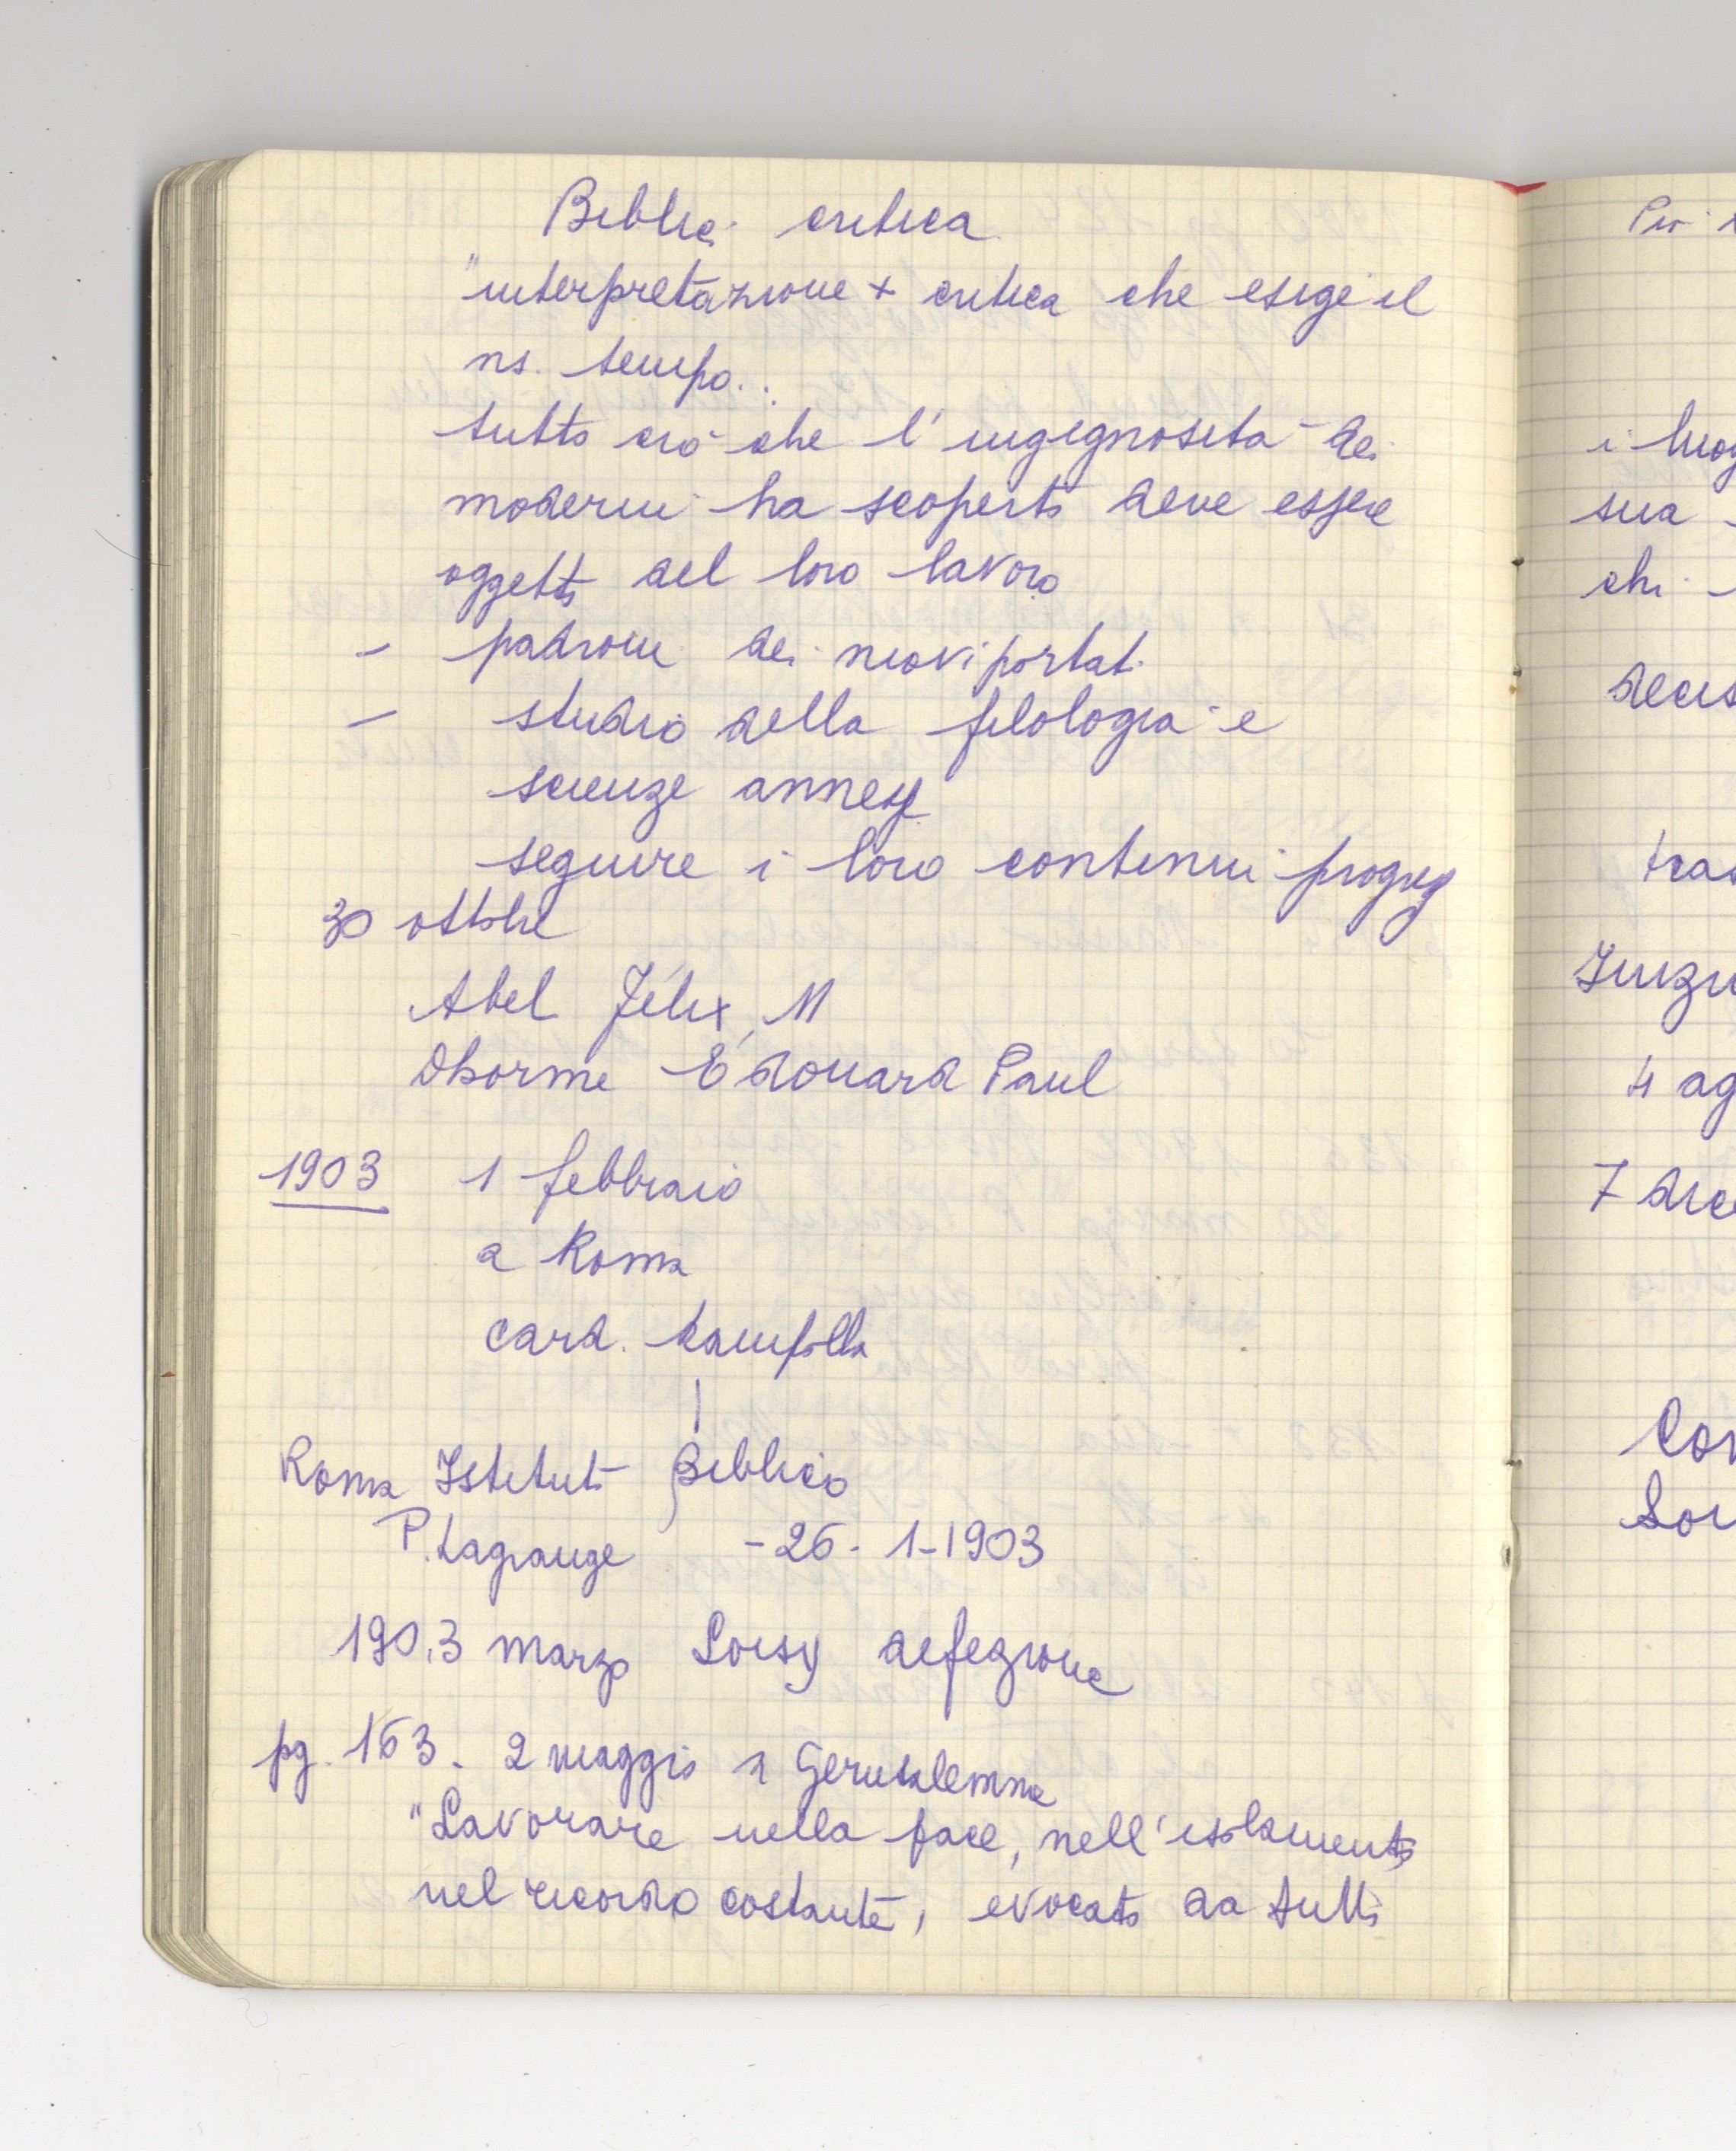 Biblic. critica
"interpretazione + critica che esige il
ns. tempo..
tutto ciò che l'ingegnosità dei
moderni ha scoperto deve essere
oggetto del loro lavoro
- padroni dei nuovi portati
- studio della filologia e
scienze annesse
seguire i loro continui progressi
30 ottobre
Abel Félix, M
Dhorme Édouard Paul
1903 1 febbraio
a Roma
card. Rampolla
Roma Istituto Biblico
P. Lagrange - 26 - 1-1903
1903 marzo Loisy defezione
pg. 163. 2 maggio a Gerusalemme
"Lavorare nella pace, nell'isolamento
nel ricordo costante, evocato da tutti
i luog
sua
chi
decis
tras
4 ag
7 dice
Con